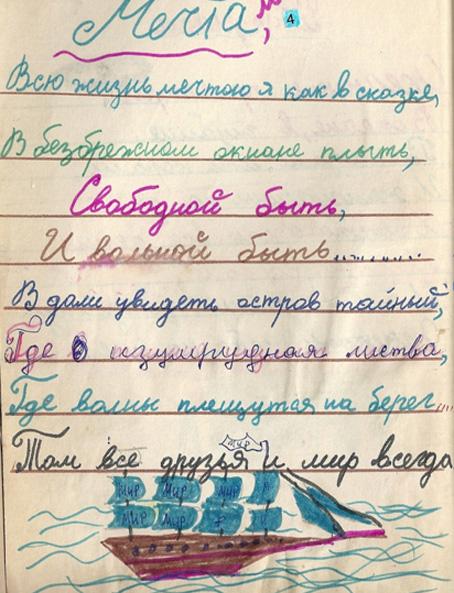 Мечта,
4
Всю жизнь мечтою я как в сказке,
В безбрежном окиане плыть,
Свободной быть,
И вольной быть..........
В дали увидеть остров тайный,
Где изумрудная листва,
Где волны плещутся на берег....
Там все друзья и мир всегда
мир
мир мир мир
мир мир